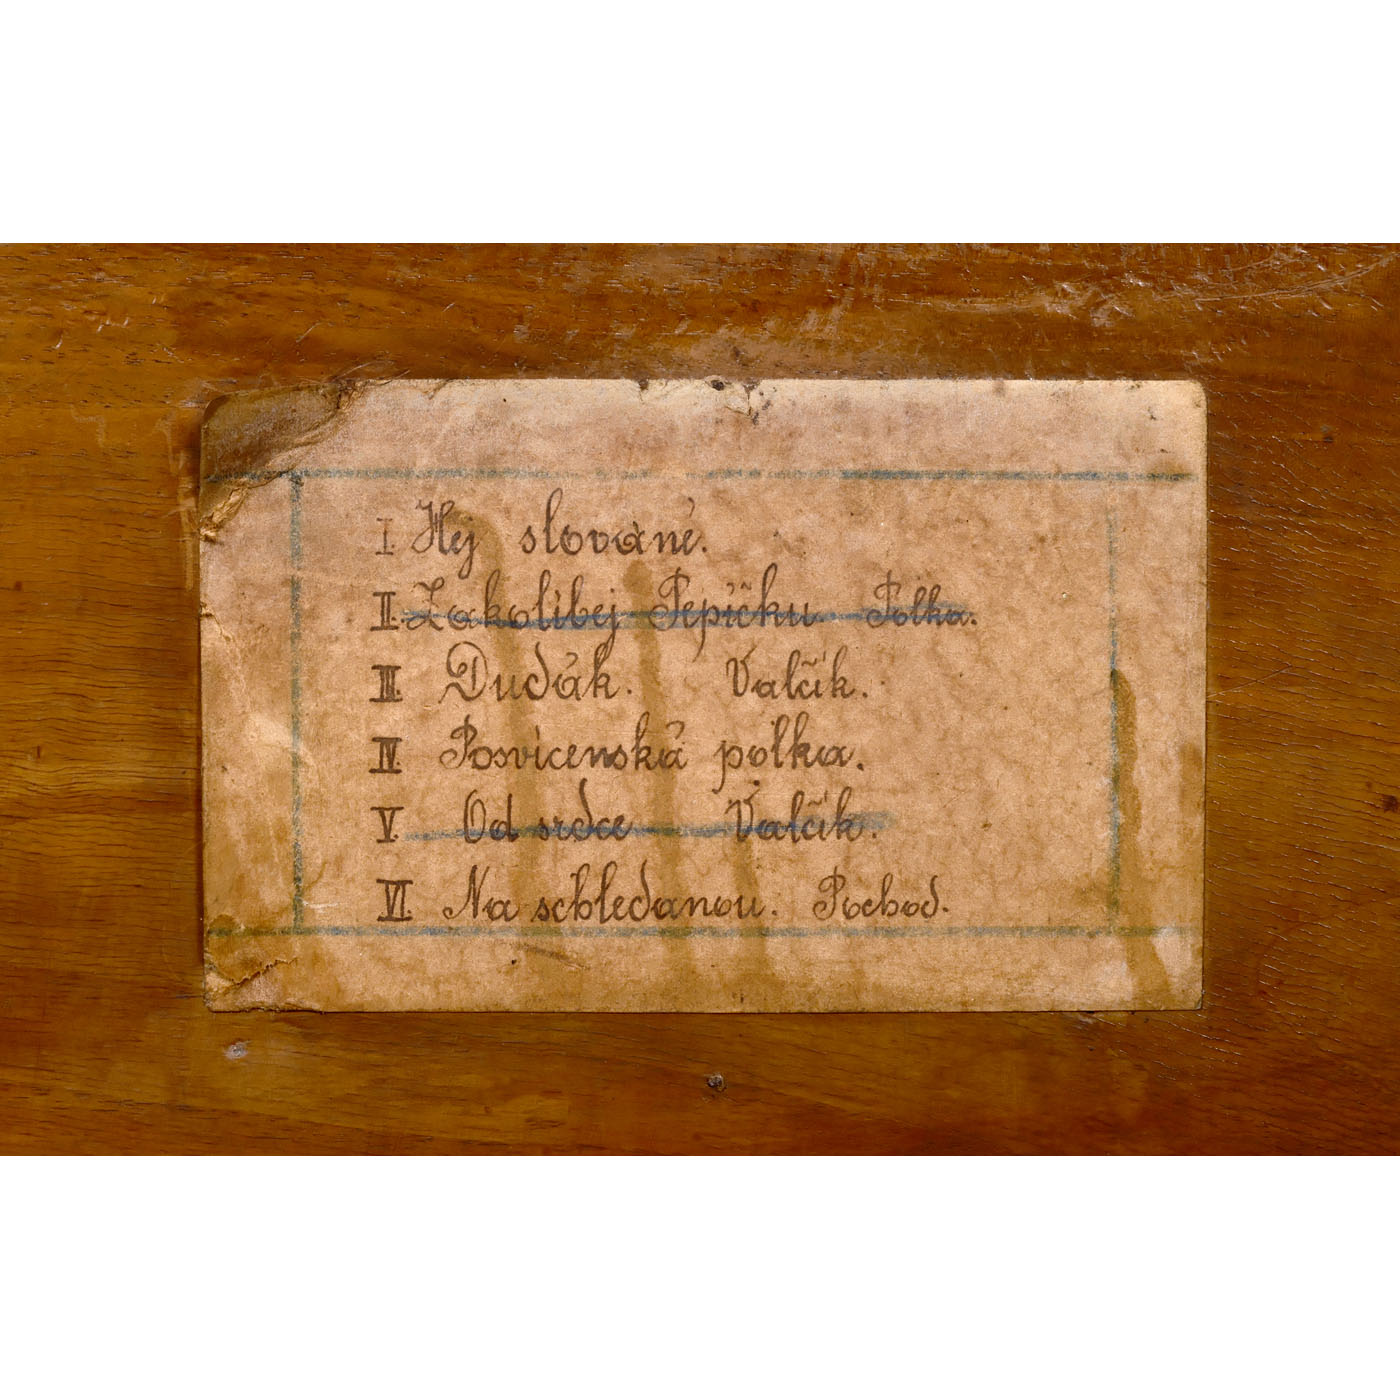 I Hej slované.
II. Zakolíbej Pepíčku Polka.
III. Dudák. Valčík.
IV Posvícenská polka.
V. Od srdce Valčík.
VI Na schledanou. Pochod.